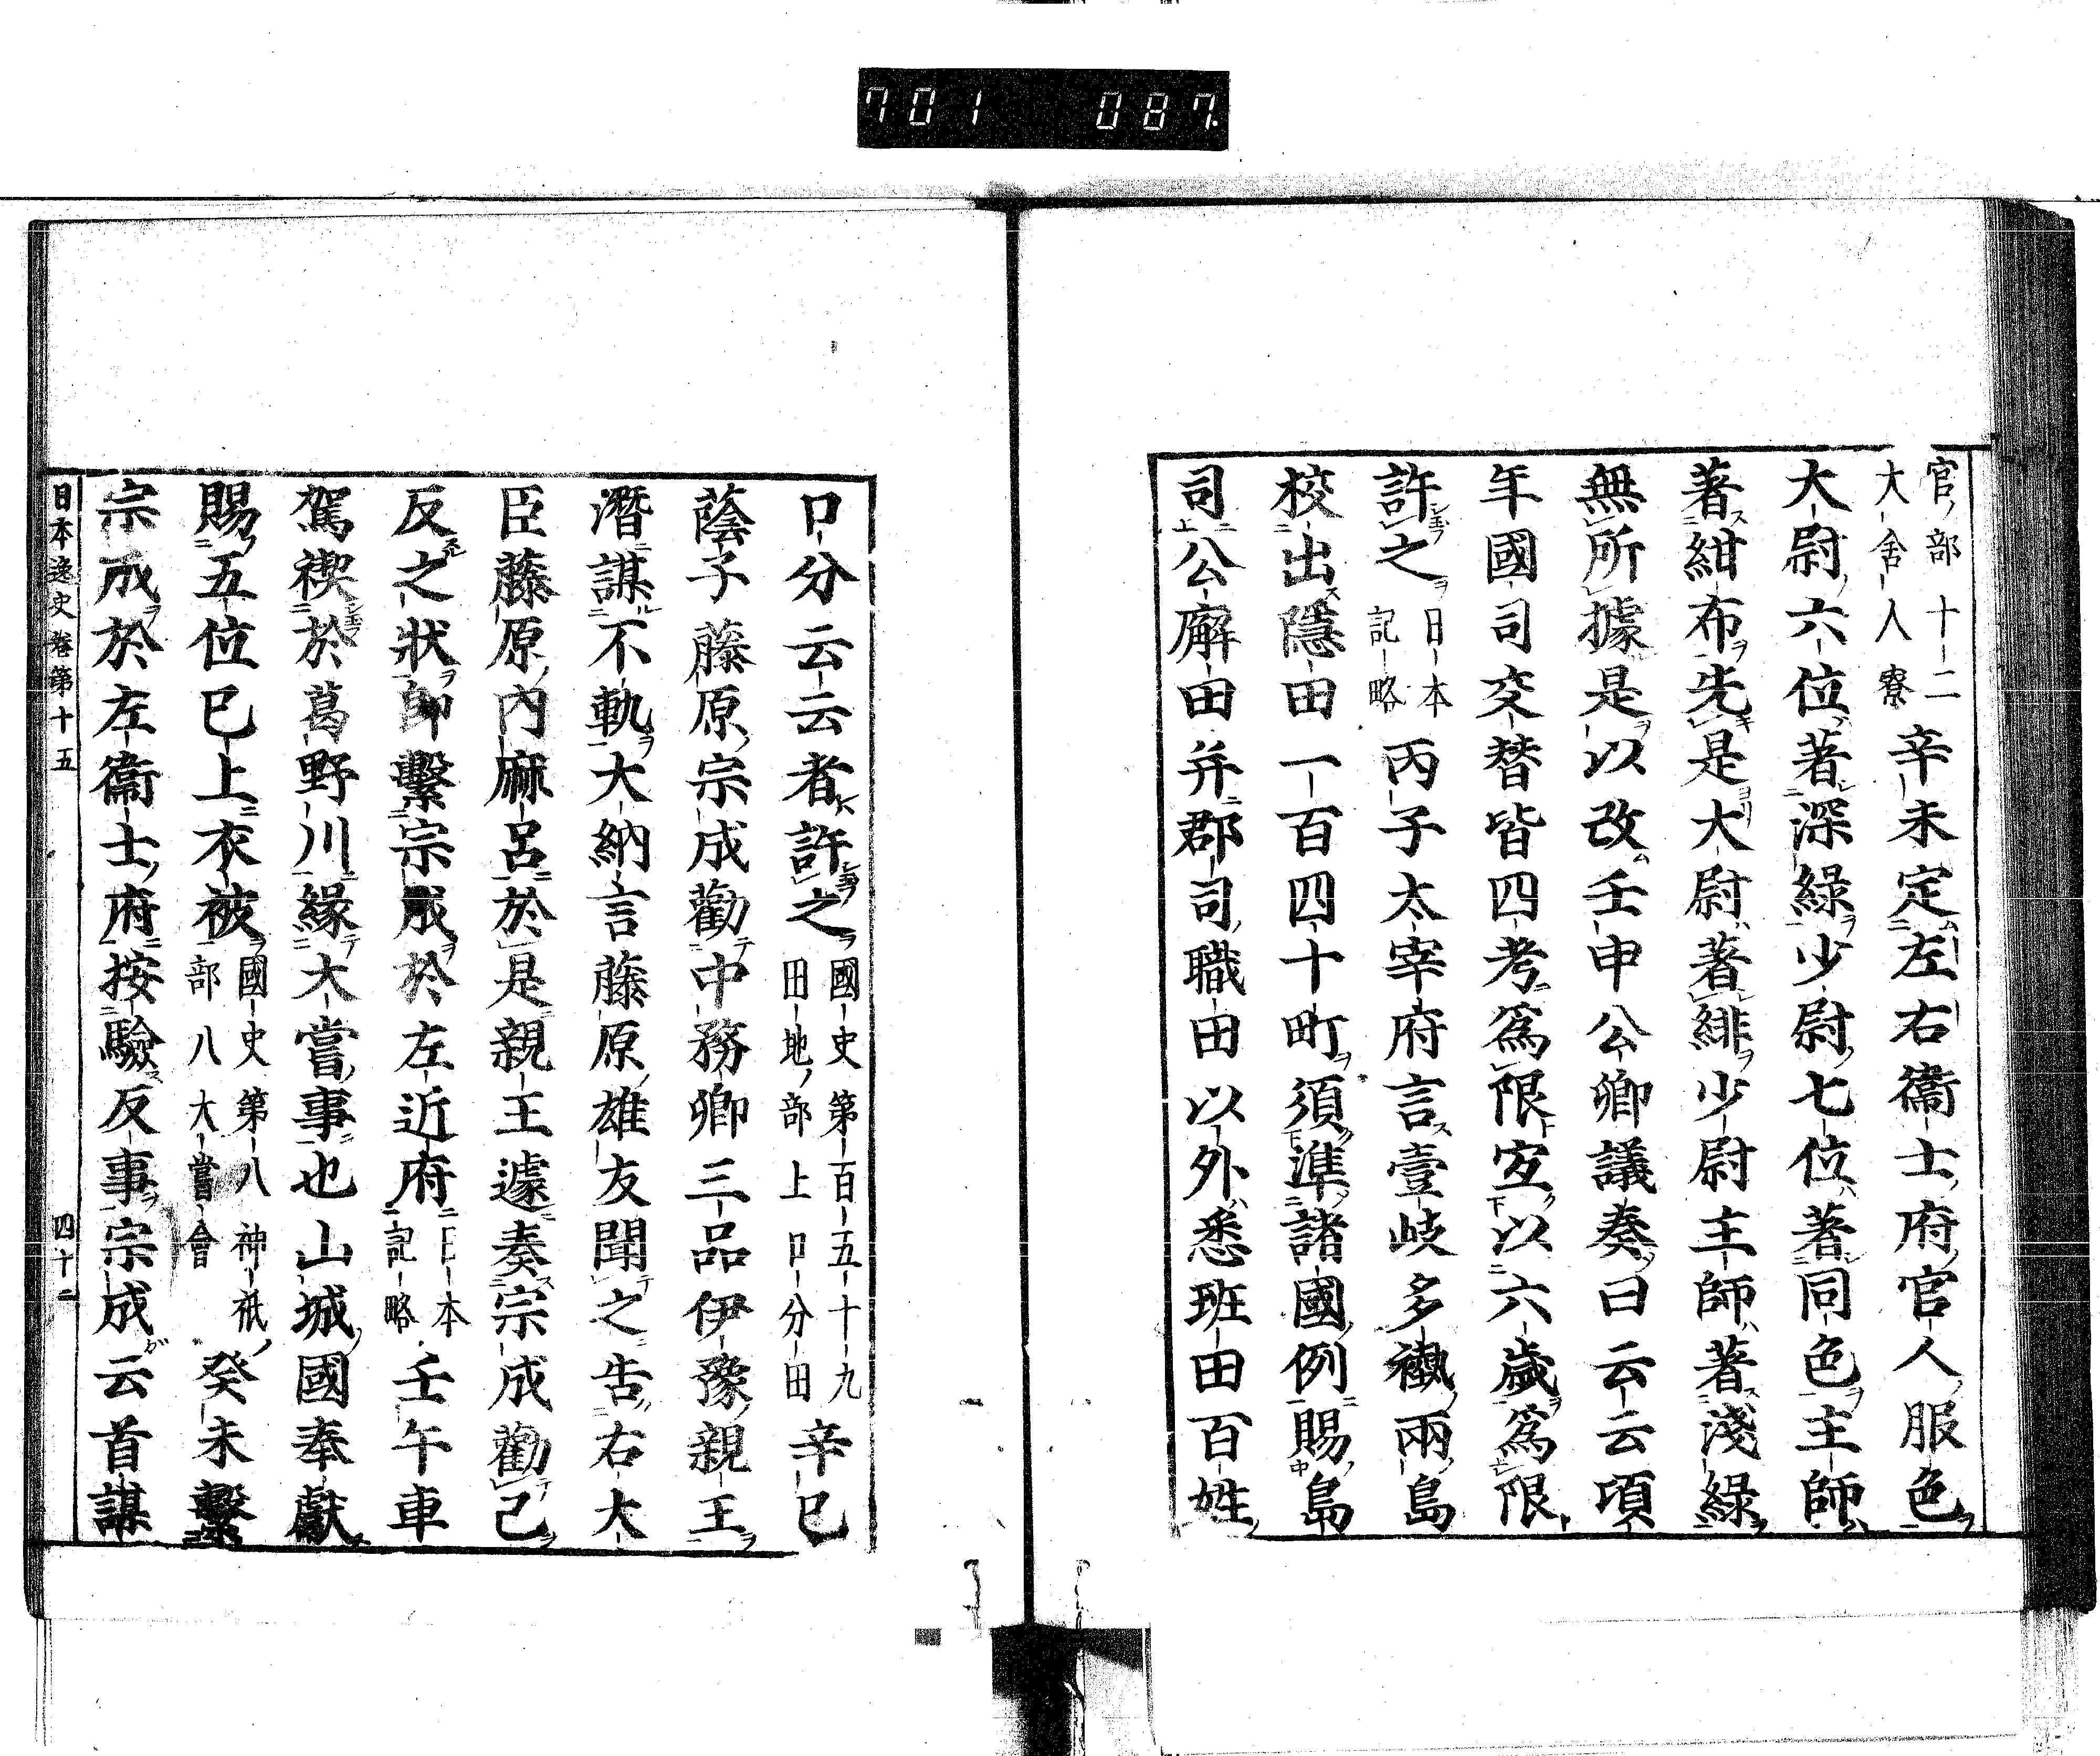 701 087
官部十二
大舍人寮
辛未定左右衞士府官人服色
大尉六位著深緑少尉七位著同色主師
著紺布先是大尉著緋少尉主師著淺緑
無所據是以改壬申公卿議奏曰云云項
年國司交替皆四考爲限宐以六歲爲限
許之
日本
記略
丙子太宰府言壹岐多褹兩島
校出隱田一百四十町須準諸國例賜島
司公廨田并郡司職田以外悉班田百姓
口分云云者許之
國史第百五十九
田地部上口分田
辛巳
蔭子藤原宗成勸中務卿三品伊豫親王
潛謀不軌大納言藤原雄友聞之告右大
臣藤原內麻呂於是親王遽奏宗成勸己
反之狀卽繫宗成於左近府
日本
記略
壬午車
駕禊於葛野川緣大嘗事也山城國奉獻
賜五位已上衣被
國史第八神祇
部八大嘗會
癸未繫
宗成於左衞士府按驗反事宗成云首謀
日本逸史卷第十五
四十二